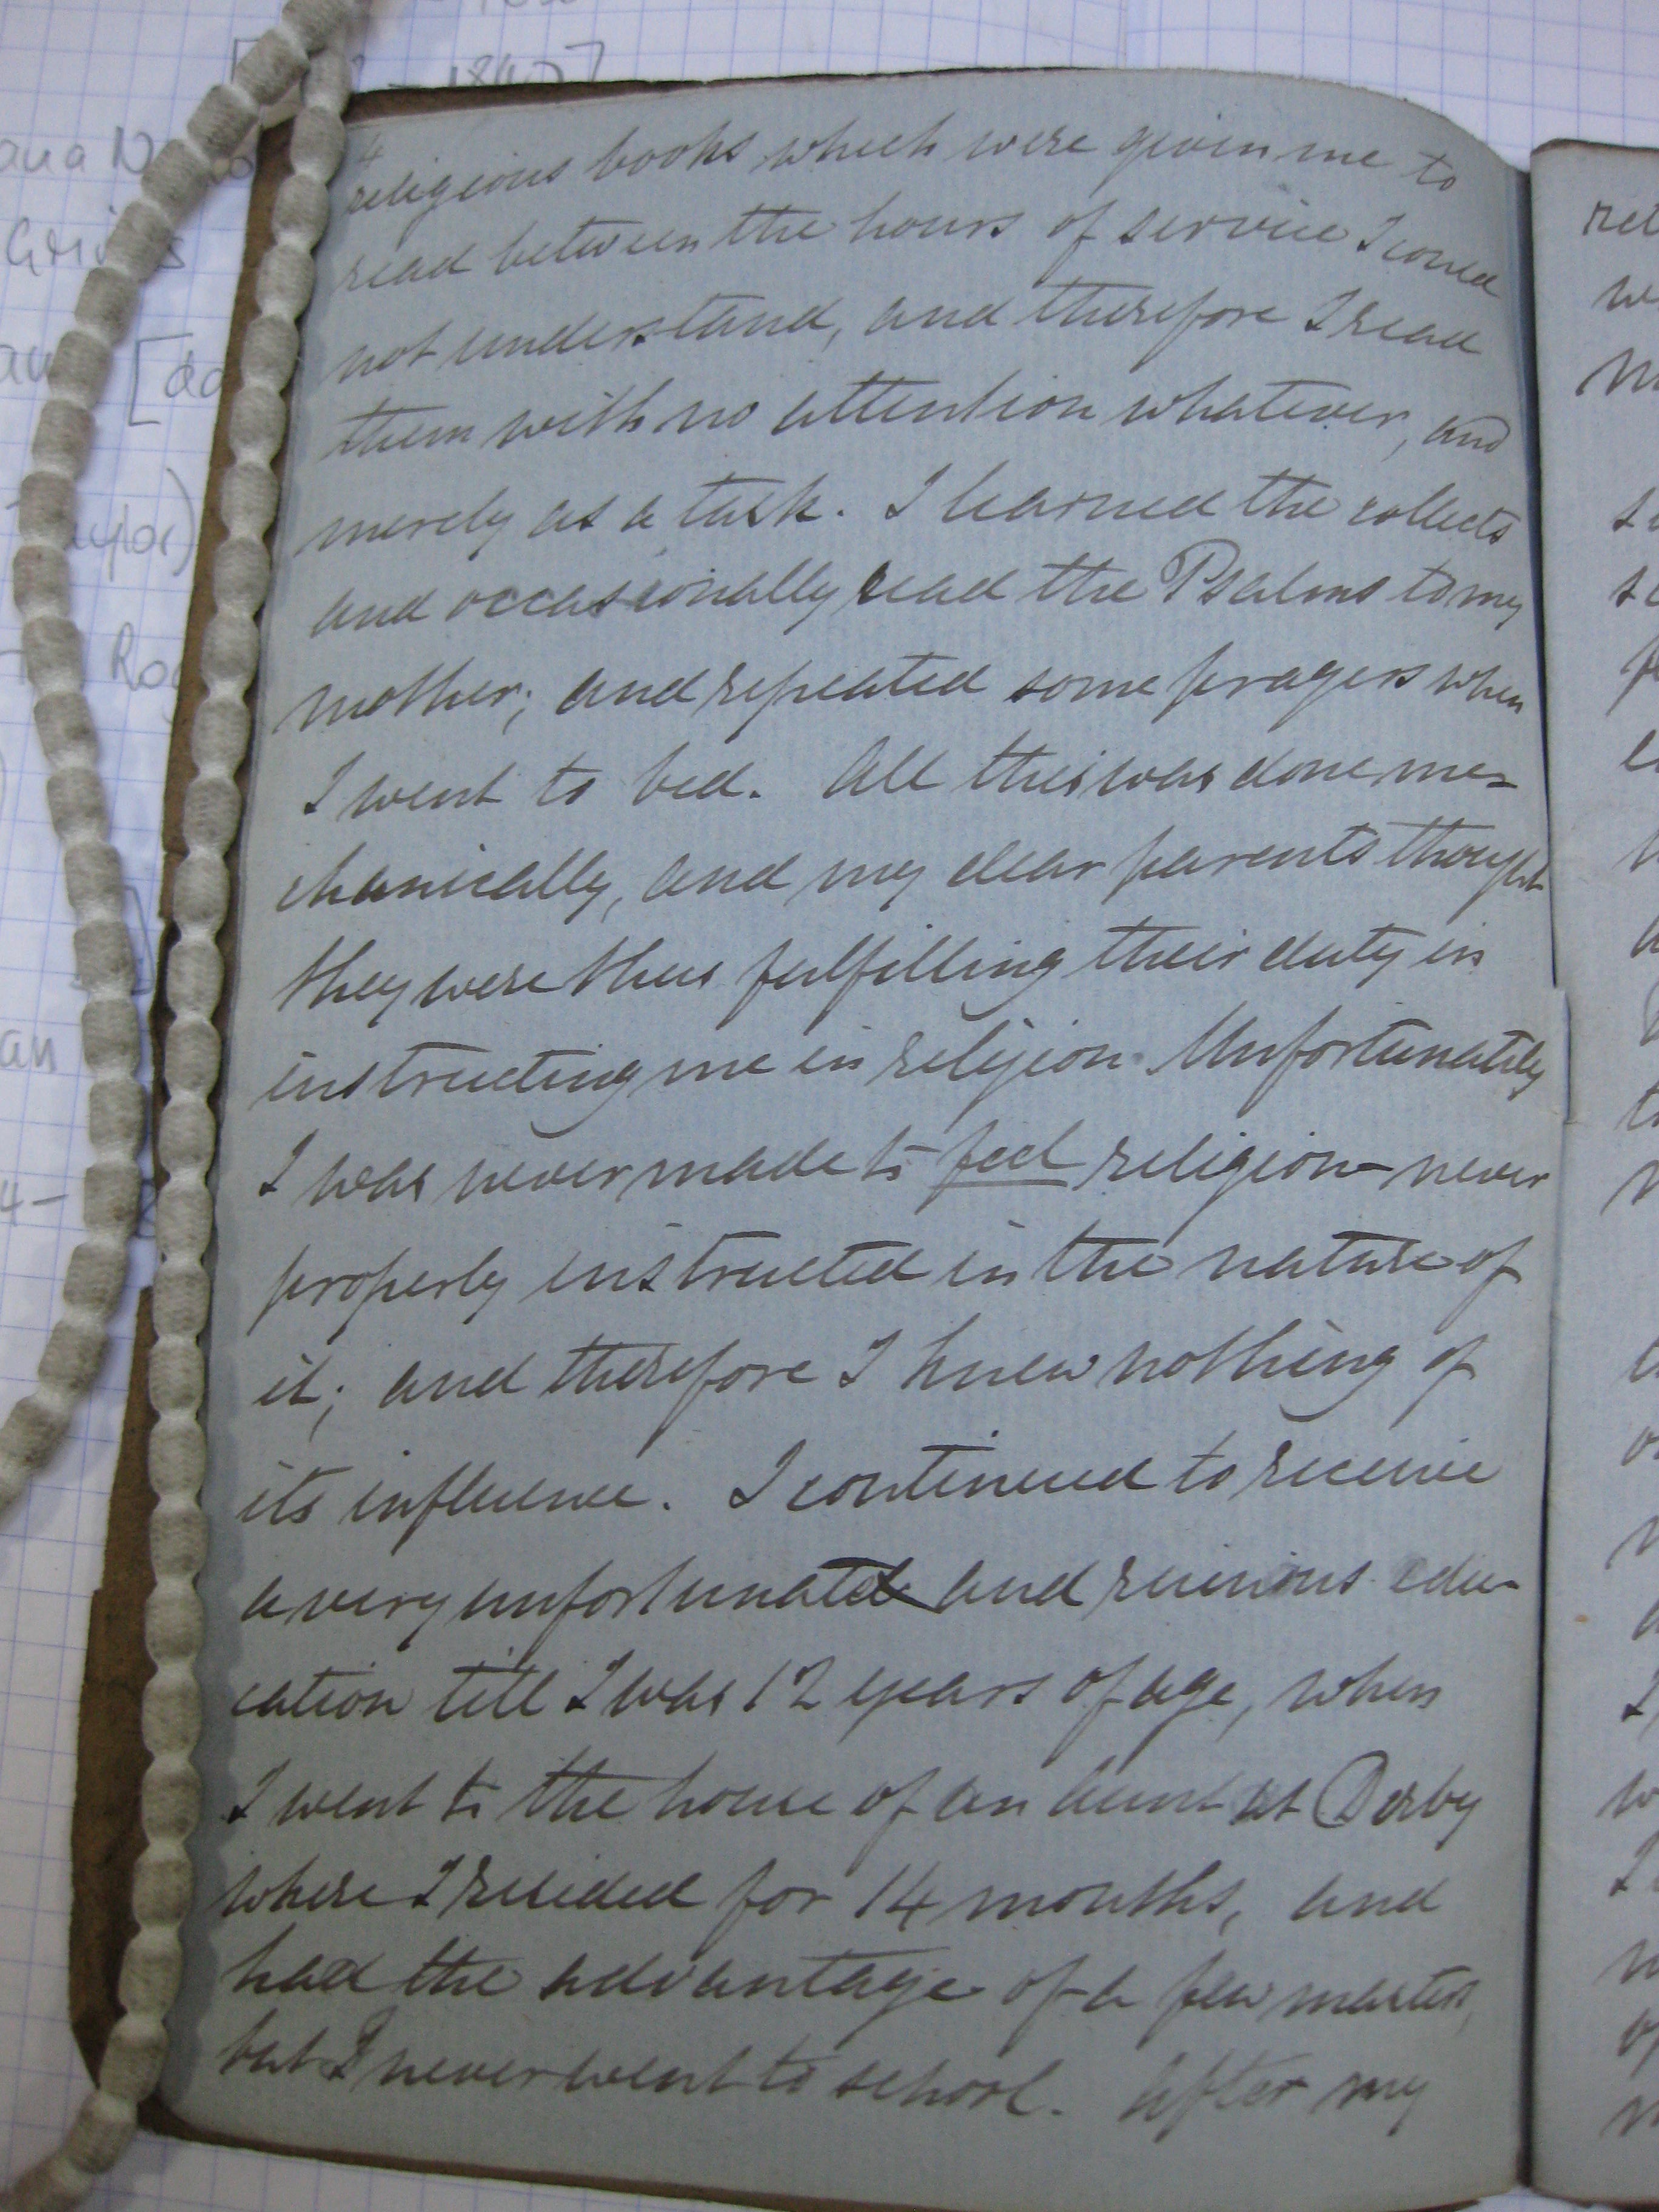 4
religious books which were given me to
read between the hours of service I could
not understand, and therefore I read
them with no attention whatever, and
merely as a task. I learned the collects
and occasionally read the Psalms to my
mother; and repeated some prayers when
I went to bed. All this was done me-
chanically, and my dear parents thought
they were thus fulfilling their duty in
instructing me in religion. Unfortunately
I was never made to feel religion - never
properly instructed in the nature of
it; and therefore I knew nothing of
its influence. I continued to receive
a very unfortunate and ruinous edu-
cation till I was 12 years of age, when
I went to the house of an aunt at Derby
where I resided for 14 months, and
had the advantage of a few masters,
but I never went to school. After my